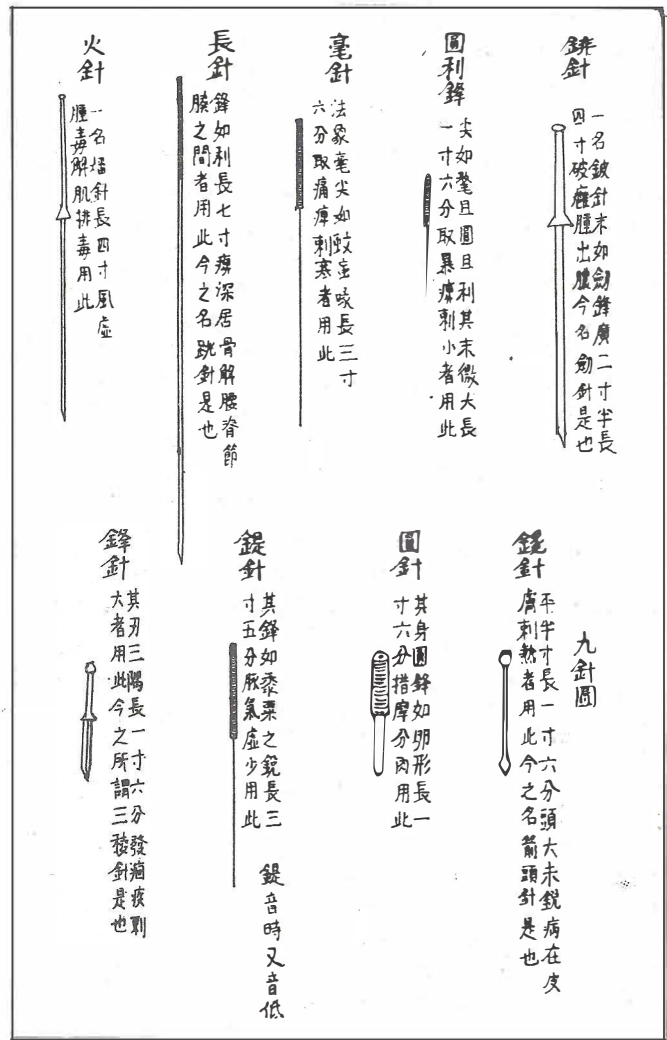 錍針
一名鈹針末如劍鋒廣二寸半長
四寸破癰腫出膿今名劍針是也
圓利鋒
尖如氂且圓且利其末微大長
一寸六分取暴痺刺小者用此
毫針
法象毫尖如蚊虻喙長三寸
六分取痛痺刺寒者用此
長針
鋒如利長七寸痺深居骨解腰脊節
腠之間者用此今之名跳針是也
火針
一名燔針長四寸風虛
腫毒解肌排毒用此
九針圖
鑱針
平半寸長一寸六分頭大末銳病在皮
膚刺熱者用此今之名箭頭針是也
圓針
其身圓鋒如卵形長一
寸六分揩摩分肉用此
鍉針
其鋒如黍粟之銳長三
寸五分脈氣虛少用此
鍉音時又音低
鋒針
其刃三隅長一寸六分發痼疾刺
大者用此今之所謂三稜針是也